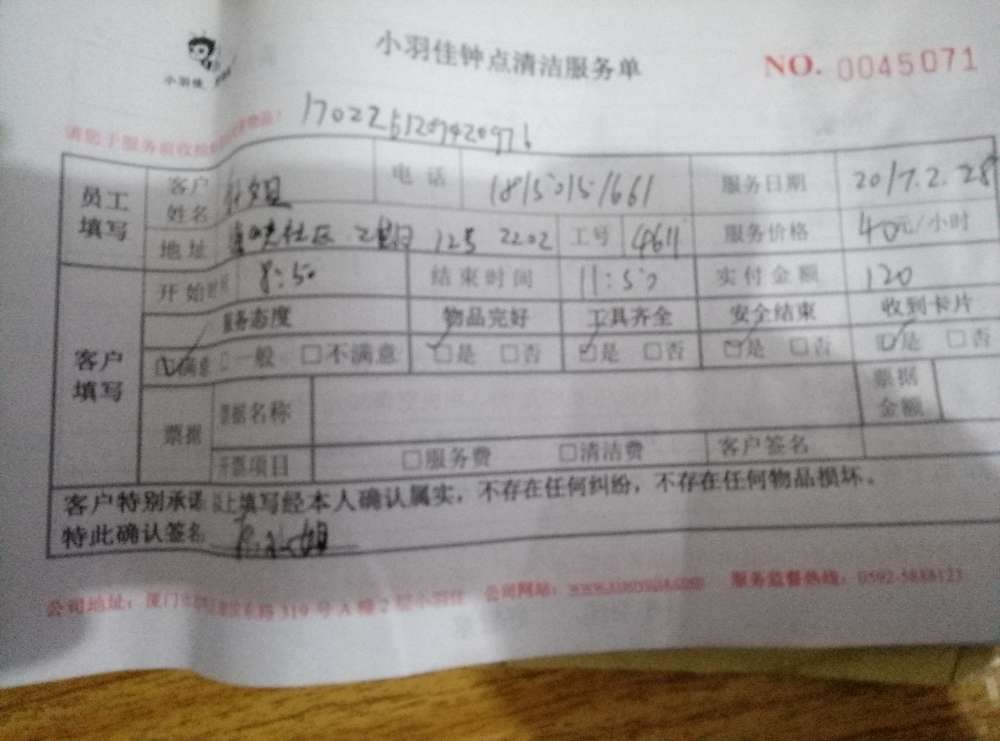 小羽佳
小羽佳钟点清洁服务单
NO. 0045071
员工填写 客户姓名 电话 18150151661 服务日期 2017.2.28
地址 12号 2202 工号 4611 服务价格 40元/小时
客户填写 开始时间 8:50 结束时间 11:50 实付金额 120
服务态度 物品完好 工具齐全 安全结束 收到卡片
☑满意 □一般 □不满意 ☑是 □否 ☑是 □否 ☑是 □否 ☑是 □否
票据 票据名称 票据金额
开票项目 □服务费 □清洁费 客户签名
客户特别承诺 以上填写经本人确认属实,不存在任何纠纷,不存在任何物品损坏。
特此确认签名
公司地址:厦门市 319号A幢2楼小羽佳 公司网站: 服务监督热线:0592-5888123